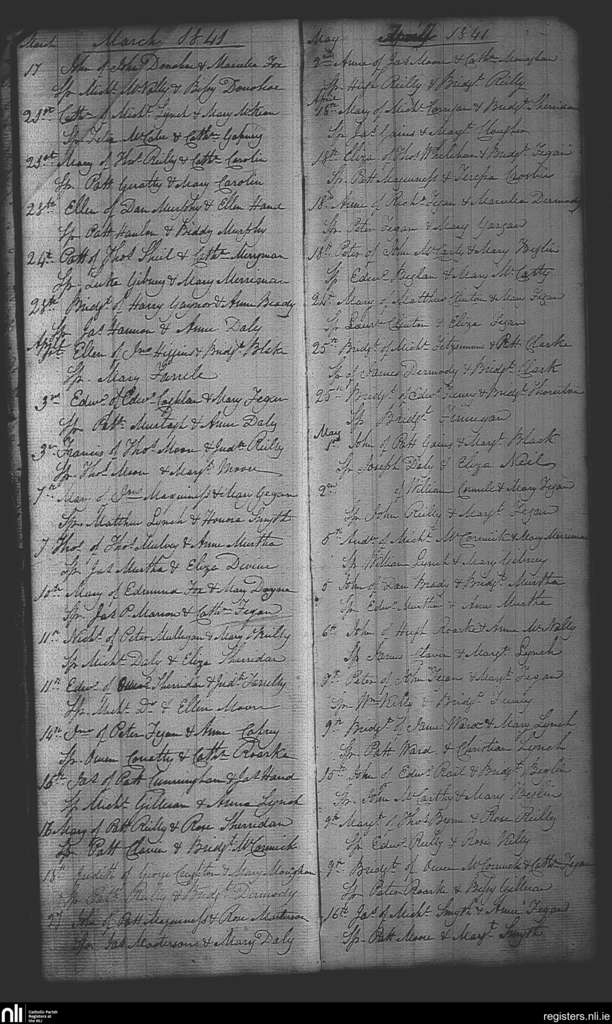 March March 1841
17 John of John Donohoe & Marcella Fox
Sp. Michl. McNally & Bessy Donohoe
21st Cathn. of Michl. Lynch & Mary McKeon
Sp. McCabe & Cathn. Gaffney
23rd Mary of Thos. Reilly & Cathn. Carolin
Sp. Patt Geraty & Mary Carolin
23rd Ellen of Dan Murphy & Ellen Hand
Sp. Patt Hanlon & Biddy Murphy
24th Patt of Thos. Sheil & Cathn. Merryman
Sp. Luke Gibney & Mary Merriman
28th Bridgt. of Harry Gaynor & Anne Brady
Sp. Jas. Hannon & Anne Daly
April 1st Ellen of Jno. Higgins & Bridgt. Blake
Sp. Mary Farrele
3rd Edwd. of Edwd. Coghlan & Mary Fegan
Sp. Patt. Murtagh & Anne Daly
3rd Francis of Thos. Moore & Judth. Reilly
Sp. Thos. Moore & Margt. Moore
7th of Jno. Maguiness & Mary Gegan
Sp. Matthew Lynch & Honora Smyth
7 Thos. of Thos. Mulvey & Anne Murtha
Sp. Jas. Murtha & Eliza Devine
10th Mary of Edmund Fox & Mary
Sp. Jas. P. Marron & Cathn. Fegan
11th Nichs. of Peter Mulligan & Mary Reilly
Sp. Michl. Daly & Eliza Sherridan
11th Edwd. of Owen Sherridan & Judth. Farrelly
Sp. Michl. Do. & Ellen Moore
14th Jno. of Peter Fegan & Anne Cabry
Sp. Owen Conatty & Cathn. Roarke
16th Jas. of Patt Cunningham & Jas Hand
Sp. Michl. Gilleran & Anne Lynch
18 Mary of Patt Reilly & Rose Sherridan
Sp. Patt Clavin & Bridgt. McCormick
18th Judith of George & Mary Monighan
Sp. Patt. Reilly & Bridgt. Dermody
27 John of Patt Maguiness & Rose
Sp. Jas. & Mary Daly
May April 1841
2nd Anne of Jas. Moore & Cathn. Monaghan
Sp. Hugh Reilly & Bridgt. Reilly
18th Mary of Michl. Corrigan & Bridgt. Sherridan
Sp. Jas. & Margt.
18th Eliza of Thos. Whelehan & Bridgt. Fegan
Sp. Patt Maguiness & Teresa
18th Anne of Richd. Fegan & Marcella Dermody
Sp. Peter Fegan & Mary
18th Peter of John McCarty & Mary Beglin
Sp. Edwd. Beglan & Mary McCarty
24th Mary of Matthew Clinton & Mary Fegan
Sp. Lawce. Clinton & Eliza Fegan
25th Bridgt. of Michl. Fitzsimons & Patt Clarke
Sp. of James Dermody & Bridgt. Clark
25th Bridgt. of Edwd. Feeny & Bridgt.
Sp. Bridgt. Finnegan
May 1st John of Patt & Margt. Black
Sp. Joseph Daly & Eliza
2nd of William Connell & Mary Fegan
Sp. John Reilly & Margt. Fegan
5th of Michl. McCormick & Mary Merriman
Sp. William Lynch & Mary Gibney
5 John of Dan Brady & Bridgt. Murtha
Sp. Edwd. Murtha & Ann Murtha
6th John of Hugh Roarke & Anne McNally
Sp. James Clavin & Margt. Lynch
8th Peter of John Fegan & Margt. Fegan
Sp. Wm. Kelly & Bridgt. Feeny
9th Bridgt. of James Ward & Mary Lynch
Sp. Patt Ward & Christian Lynch
15th John of Edwd. & Bridgt. Beglin
Sp. John McCarthy & Mary
9th Margt. of Thos. Byrne & Rose Reilly
Sp. Edwd. Reilly & Rose Reilly
9th Bridgt. of Owen McCormick & Cathn. Fegan
Sp. Peter Roarke & Bessy Gilleran
16th Jas. of Michl. Smyth & Anne Fegan
Sp. Patt Moore & Margt. Smyth
nli Catholic Parish
Registers at
the NLI
registers.nli.ie